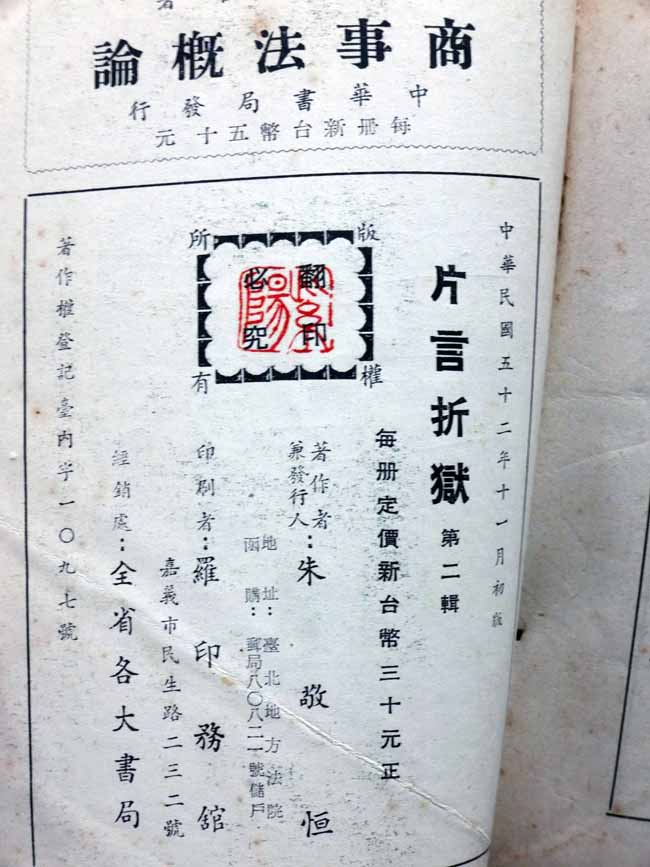 商事法概論
中華書局發行
每冊新台幣五十元
中華民國五十二年十一月初版
片言折獄 第二輯
每冊定價新台幣三十元正
版權所有
翻印必究
著作者兼發行人：朱敬恒
地址：臺北地方法院
函購：郵局八〇八二一號儲戶
印刷者：羅印務舘
嘉義市民生路二三二號
經銷處：全省各大書局
著作權登記臺內字一〇九七號